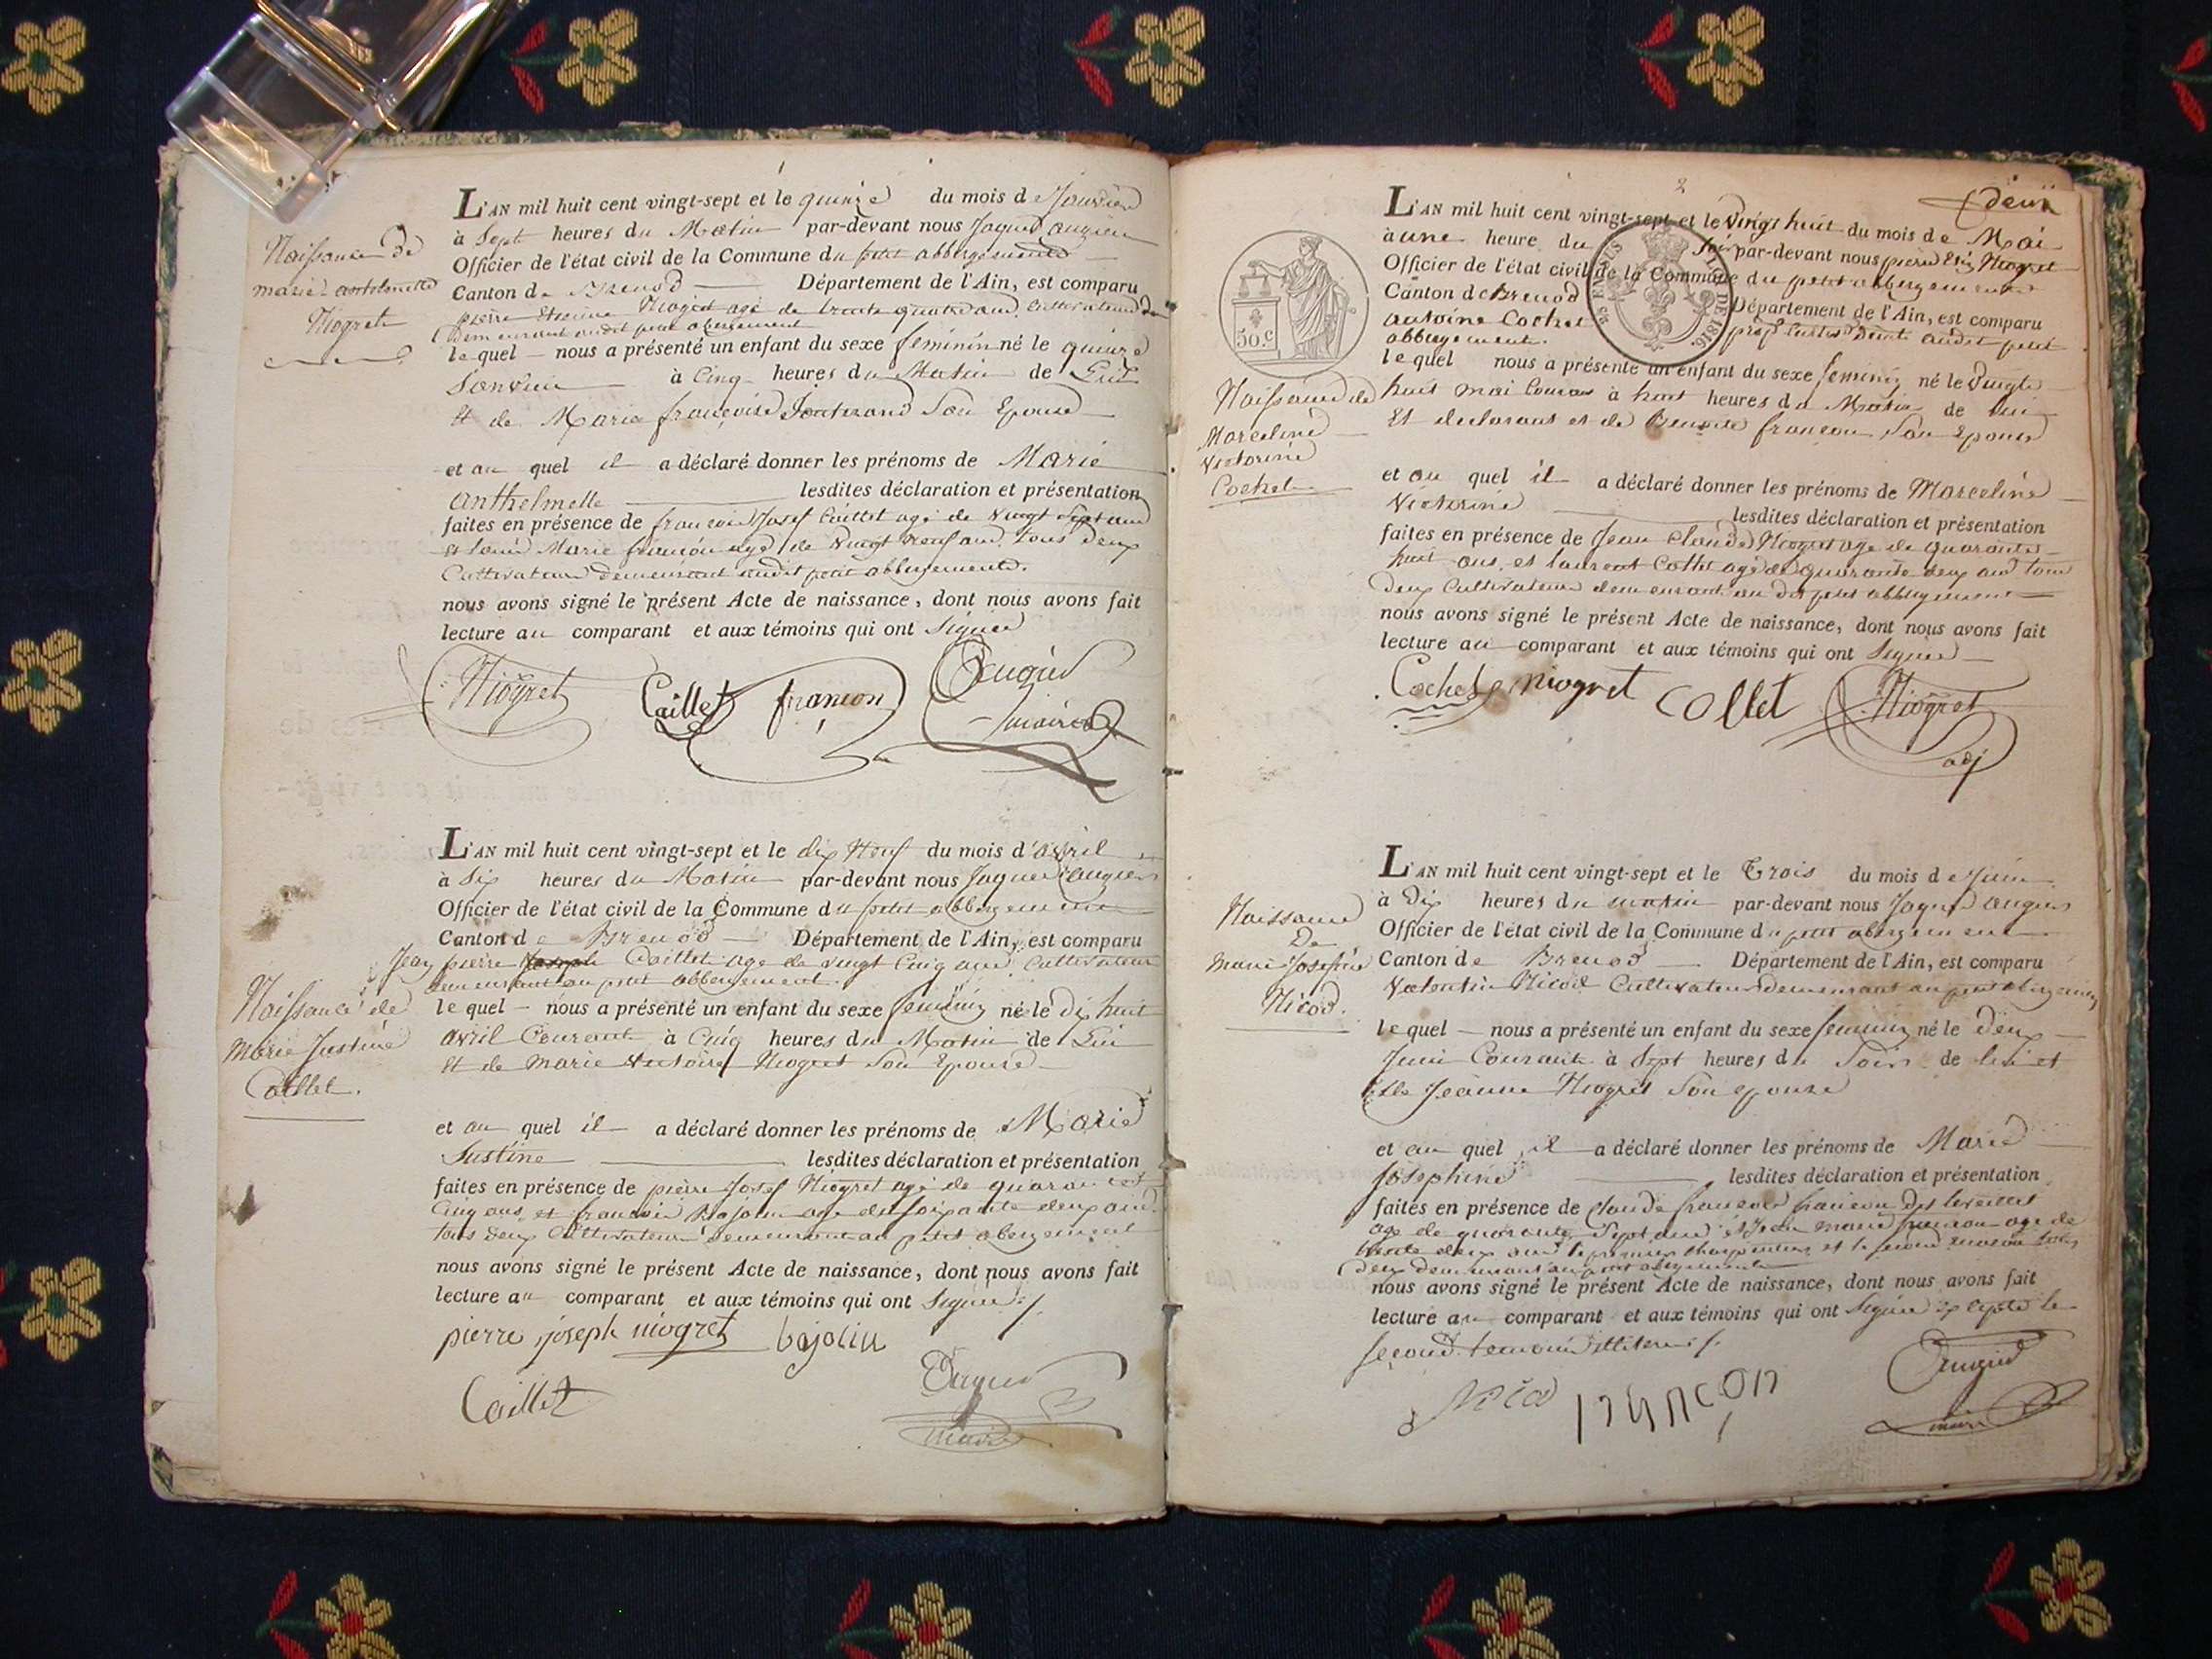 L'AN mil huit cent vingt-sept et le quinze du mois de Janvier
à Sept heures du Matin par-devant nous Jaques augier
Officier de l'état civil de la Commune du petit abbergement
Canton de Brenod Département de l'Ain, est comparu
pierre Etienne Niogret agé de trente quatre ans Cultivateur
Demeurant audit petit abergement
lequel nous a présenté un enfant du sexe féminin né le quinze
Janvier à Cinq heures du Matin de Lui
Et de Marie françoise Son Epouse
et au quel il a déclaré donner les prénoms de Marie
anthelmette lesdites déclaration et présentation
faites en présence de françois Josef Caillet agé de Vingt Sept ans
et Marie françon agé de Vingt neuf ans tous deux
Cultivateurs demeurant audit petit abbergement.
nous avons signé le présent Acte de naissance, dont nous avons fait
lecture au comparant et aux témoins qui ont Signés
Niogret Caillet françon Augier
maire
Naissance de
marie anthelmette
Niogret
L'AN mil huit cent vingt-sept et le dix Neuf du mois d'avril
à Six heures du Matin par-devant nous Jaques augier
Officier de l'état civil de la Commune du petit abbergement
Canton de Brenod Département de l'Ain, est comparu
Jean pierre Caillet age de vingt Cinq ans Cultivateur
demeurant au petit abbergement.
lequel nous a présenté un enfant du sexe féminin né le dix huit
avril Courant à Cinq heures du Matin de Lui
Et de marie Victoire Niogret Son Epouse
et au quel il a déclaré donner les prénoms de Marie
Justine lesdites déclaration et présentation
faites en présence de pierre Josef Niogret agé de quarante
Cinq ans et francois Bajolin age de soixante deux ans
tous deux Cultivateurs demeurant au petit abergement
nous avons signé le présent Acte de naissance, dont nous avons fait
lecture au comparant et aux témoins qui ont Signés
pierre joseph niogret bajolin
Caillet Augier
maire
Naissance de
Marie Justine
Caillet.
2
deux
L'AN mil huit cent vingt-sept et le Vingt huit du mois de Mai
à une heure du Soir par-devant nous pierre Niogret
Officier de l'état civil de la Commune du petit abbergement
Canton de Brenod Département de l'Ain, est comparu
antoine Cochet audit petit
abbergement.
lequel nous a présenté un enfant du sexe feminin né le Vingt
huit mai Courant à huit heures du Matin de lui
Et declarant et de françon Son Epouse
et au quel il a déclaré donner les prénoms de Marceline
Victorine lesdites déclaration et présentation
faites en présence de Jean Claude Niogret age de quarante
huit ans, et laurent Collet agé de quarante deux ans tous
deux Cultivateurs demeurant au dit petit abbergement
nous avons signé le présent Acte de naissance, dont nous avons fait
lecture au comparant et aux témoins qui ont Signés
Cochet niogret collet Niogret
adj
50.C
1816.
Naissance de
Marceline
Victorine
Cochet
L'AN mil huit cent vingt-sept et le Trois du mois de Juin
à Dix heures du matin par-devant nous Jaques augier
Officier de l'état civil de la Commune du petit abergement
Canton de Brenod Département de l'Ain, est comparu
Valentin Nicod Cultivateur demeurant au petit abergement
lequel nous a présenté un enfant du sexe feminin né le deux
Juin Courant à Sept heures du Soir de lui et
de Jeanne Niogret Son epouse
et au quel il a déclaré donner les prénoms de Marie
Josephine lesdites déclaration et présentation
faites en présence de Claude francois francon
age de quarante Sept ans et Jean marie francon age de
trente deux ans le premier charpentier et le second tous
deux demeurant au petit abergement
nous avons signé le présent Acte de naissance, dont nous avons fait
lecture au comparant et aux témoins qui ont Signés excepté le
second temoin
Nicod françon Augier
maire
Naissance
De
Marie Josephine
Nicod.